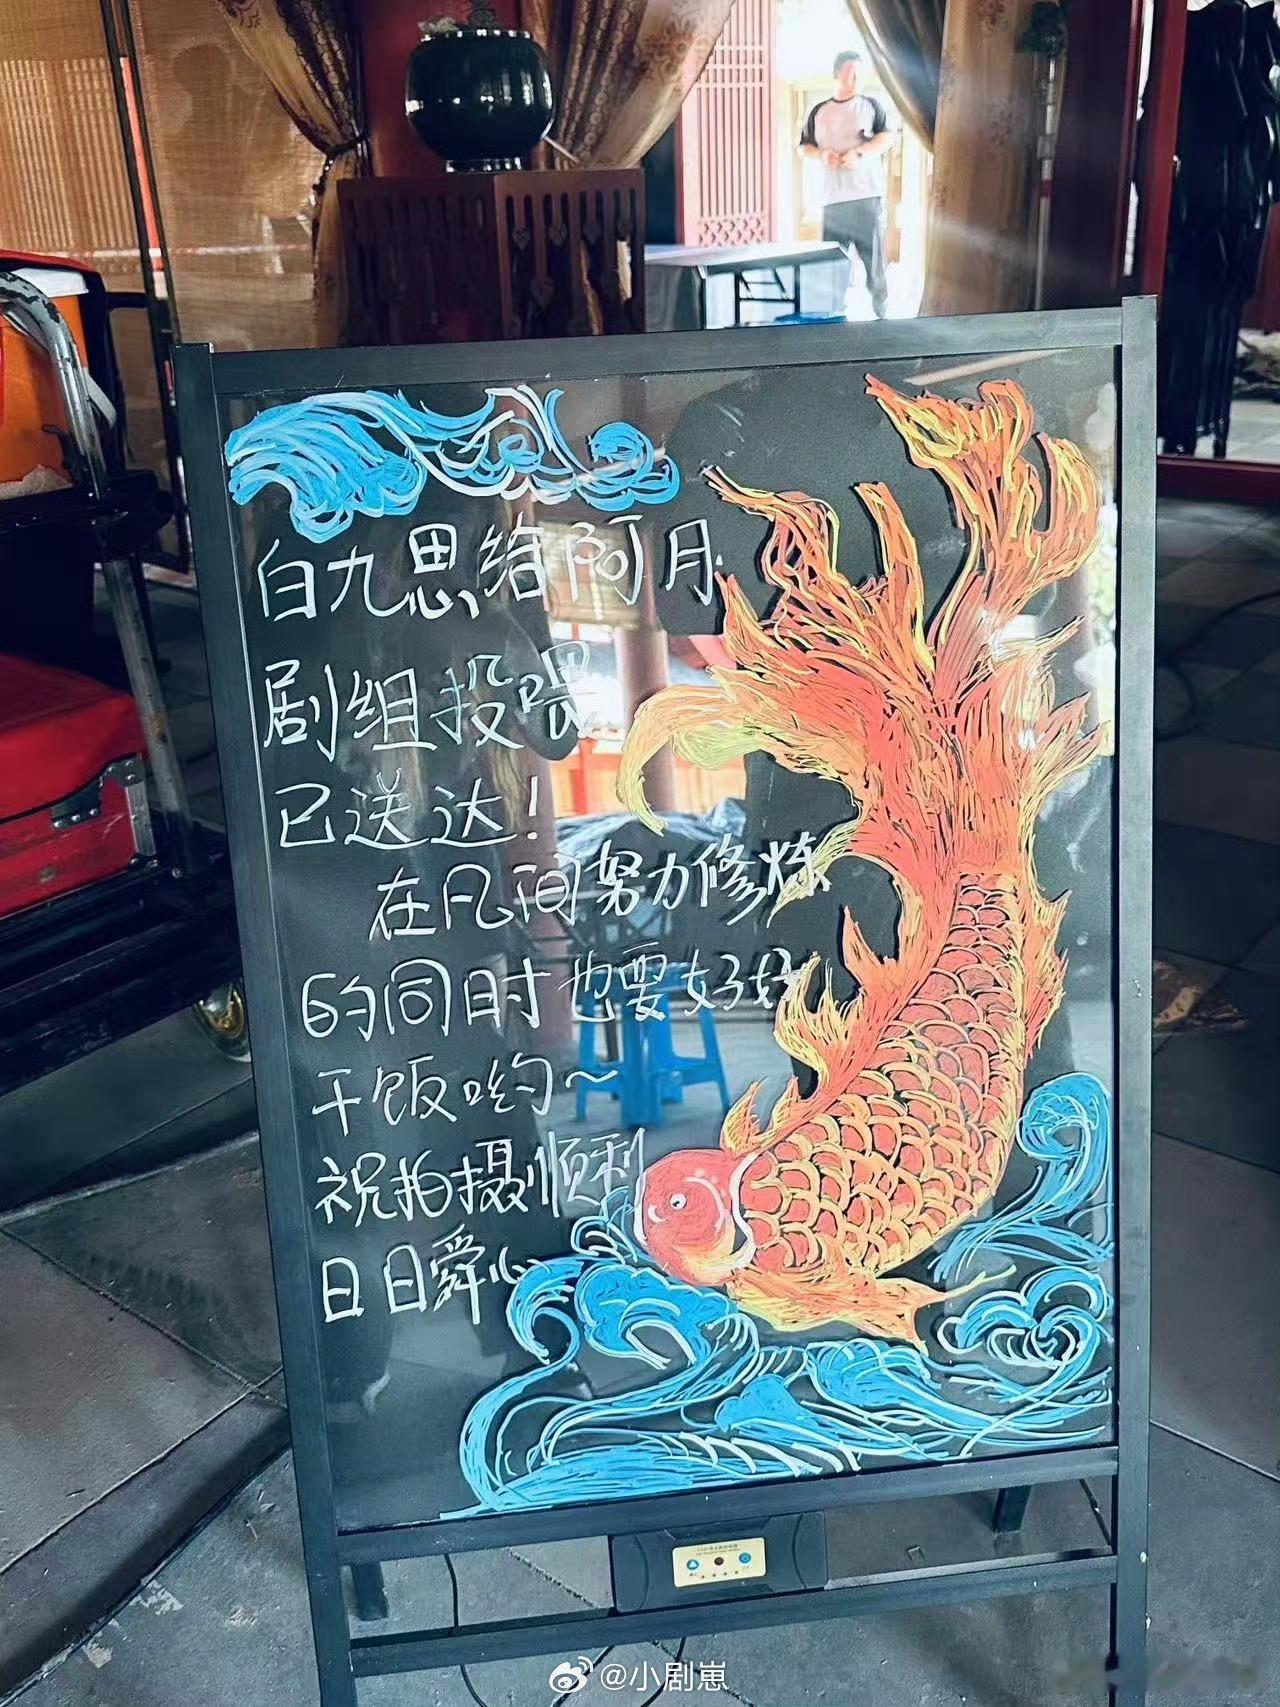 白九思给阿月
剧组投喂
已送达!
在凡间努力修炼
的同时也要好好
干饭哟~
祝拍摄顺利
日日舜心
@小剧崽